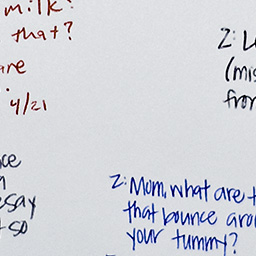 milk?
that?
are
4/21
Z: L
(mis
from
ce
esay
t so
Z: Mom, what are t
that bounce arou
your tummy?